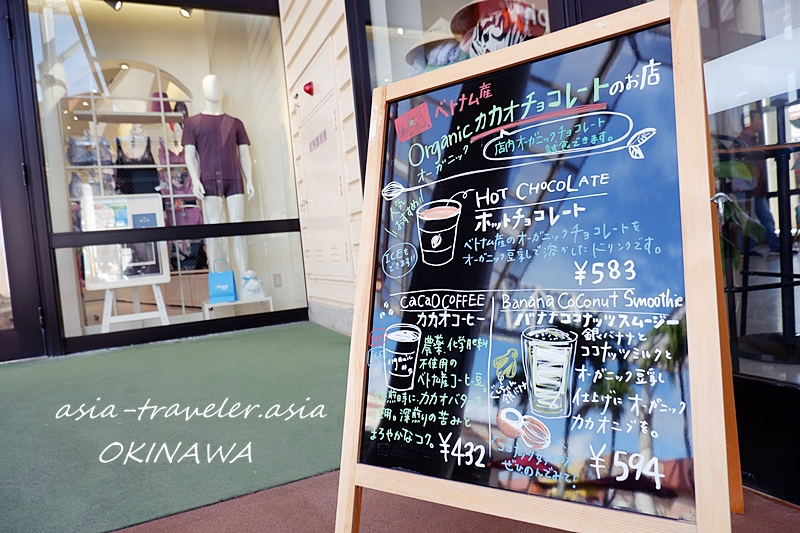 ベトナム産
Organic カカオチョコレートのお店
オーガニック
店内オーガニックチョコレート
試食できます。
人気
おすすめ!!
HOT CHOCOLATE
ホットチョコレート
ICEも
できます!
ベトナム産のオーガニックチョコレートを
オーガニック豆乳で溶かしたドリンクです。
¥583
CACAO COFFEE
カカオコーヒー
農薬、化学肥料
不使用の
ベトナム産コーヒー豆。
焙煎時にカカオバターを
使用。深煎りの苦みと
まろやかなコク。
¥432
Banana Coconut Smoothie
バナナココナッツスムージー
銀バナナと
ココナッツミルクと
オーガニック豆乳
仕上げにオーガニック
カカオニブを。
ぜひのんでみて!
¥594
asia-traveler.asia
OKINAWA